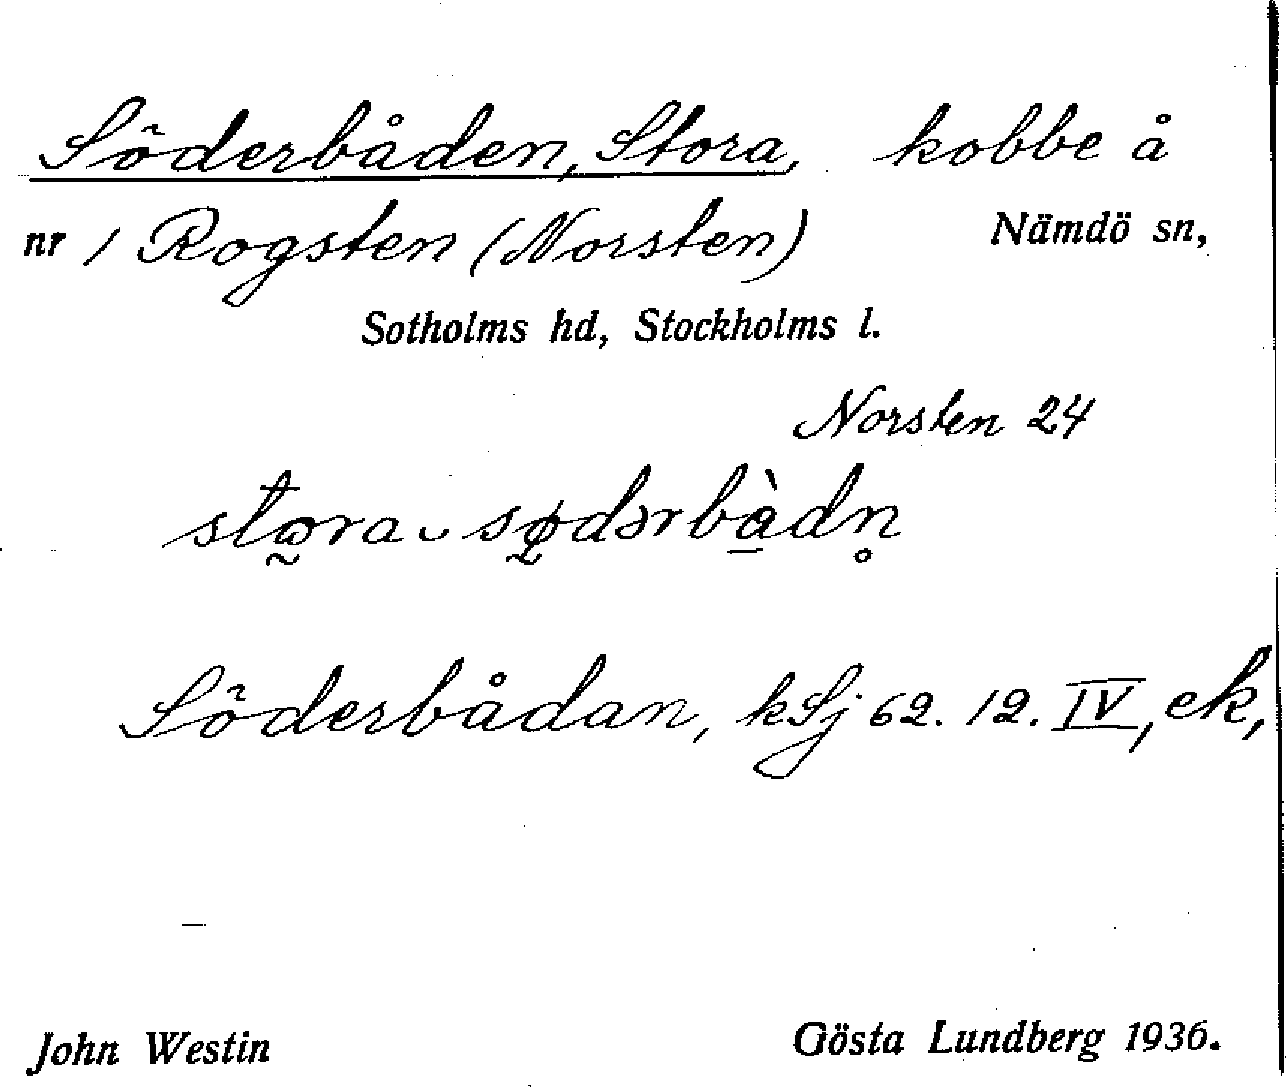 Söderbåden, Stora, kobbe å
nr 1 Rogsten (Norsten) Nämdö sn,
Sotholms hd, Stockholms l.
Norsten 24
stora ᴗ sødərbàdn̥
Söderbådan, kSj 62. 12. IV, ek,
John Westin Gösta Lundberg 1936.